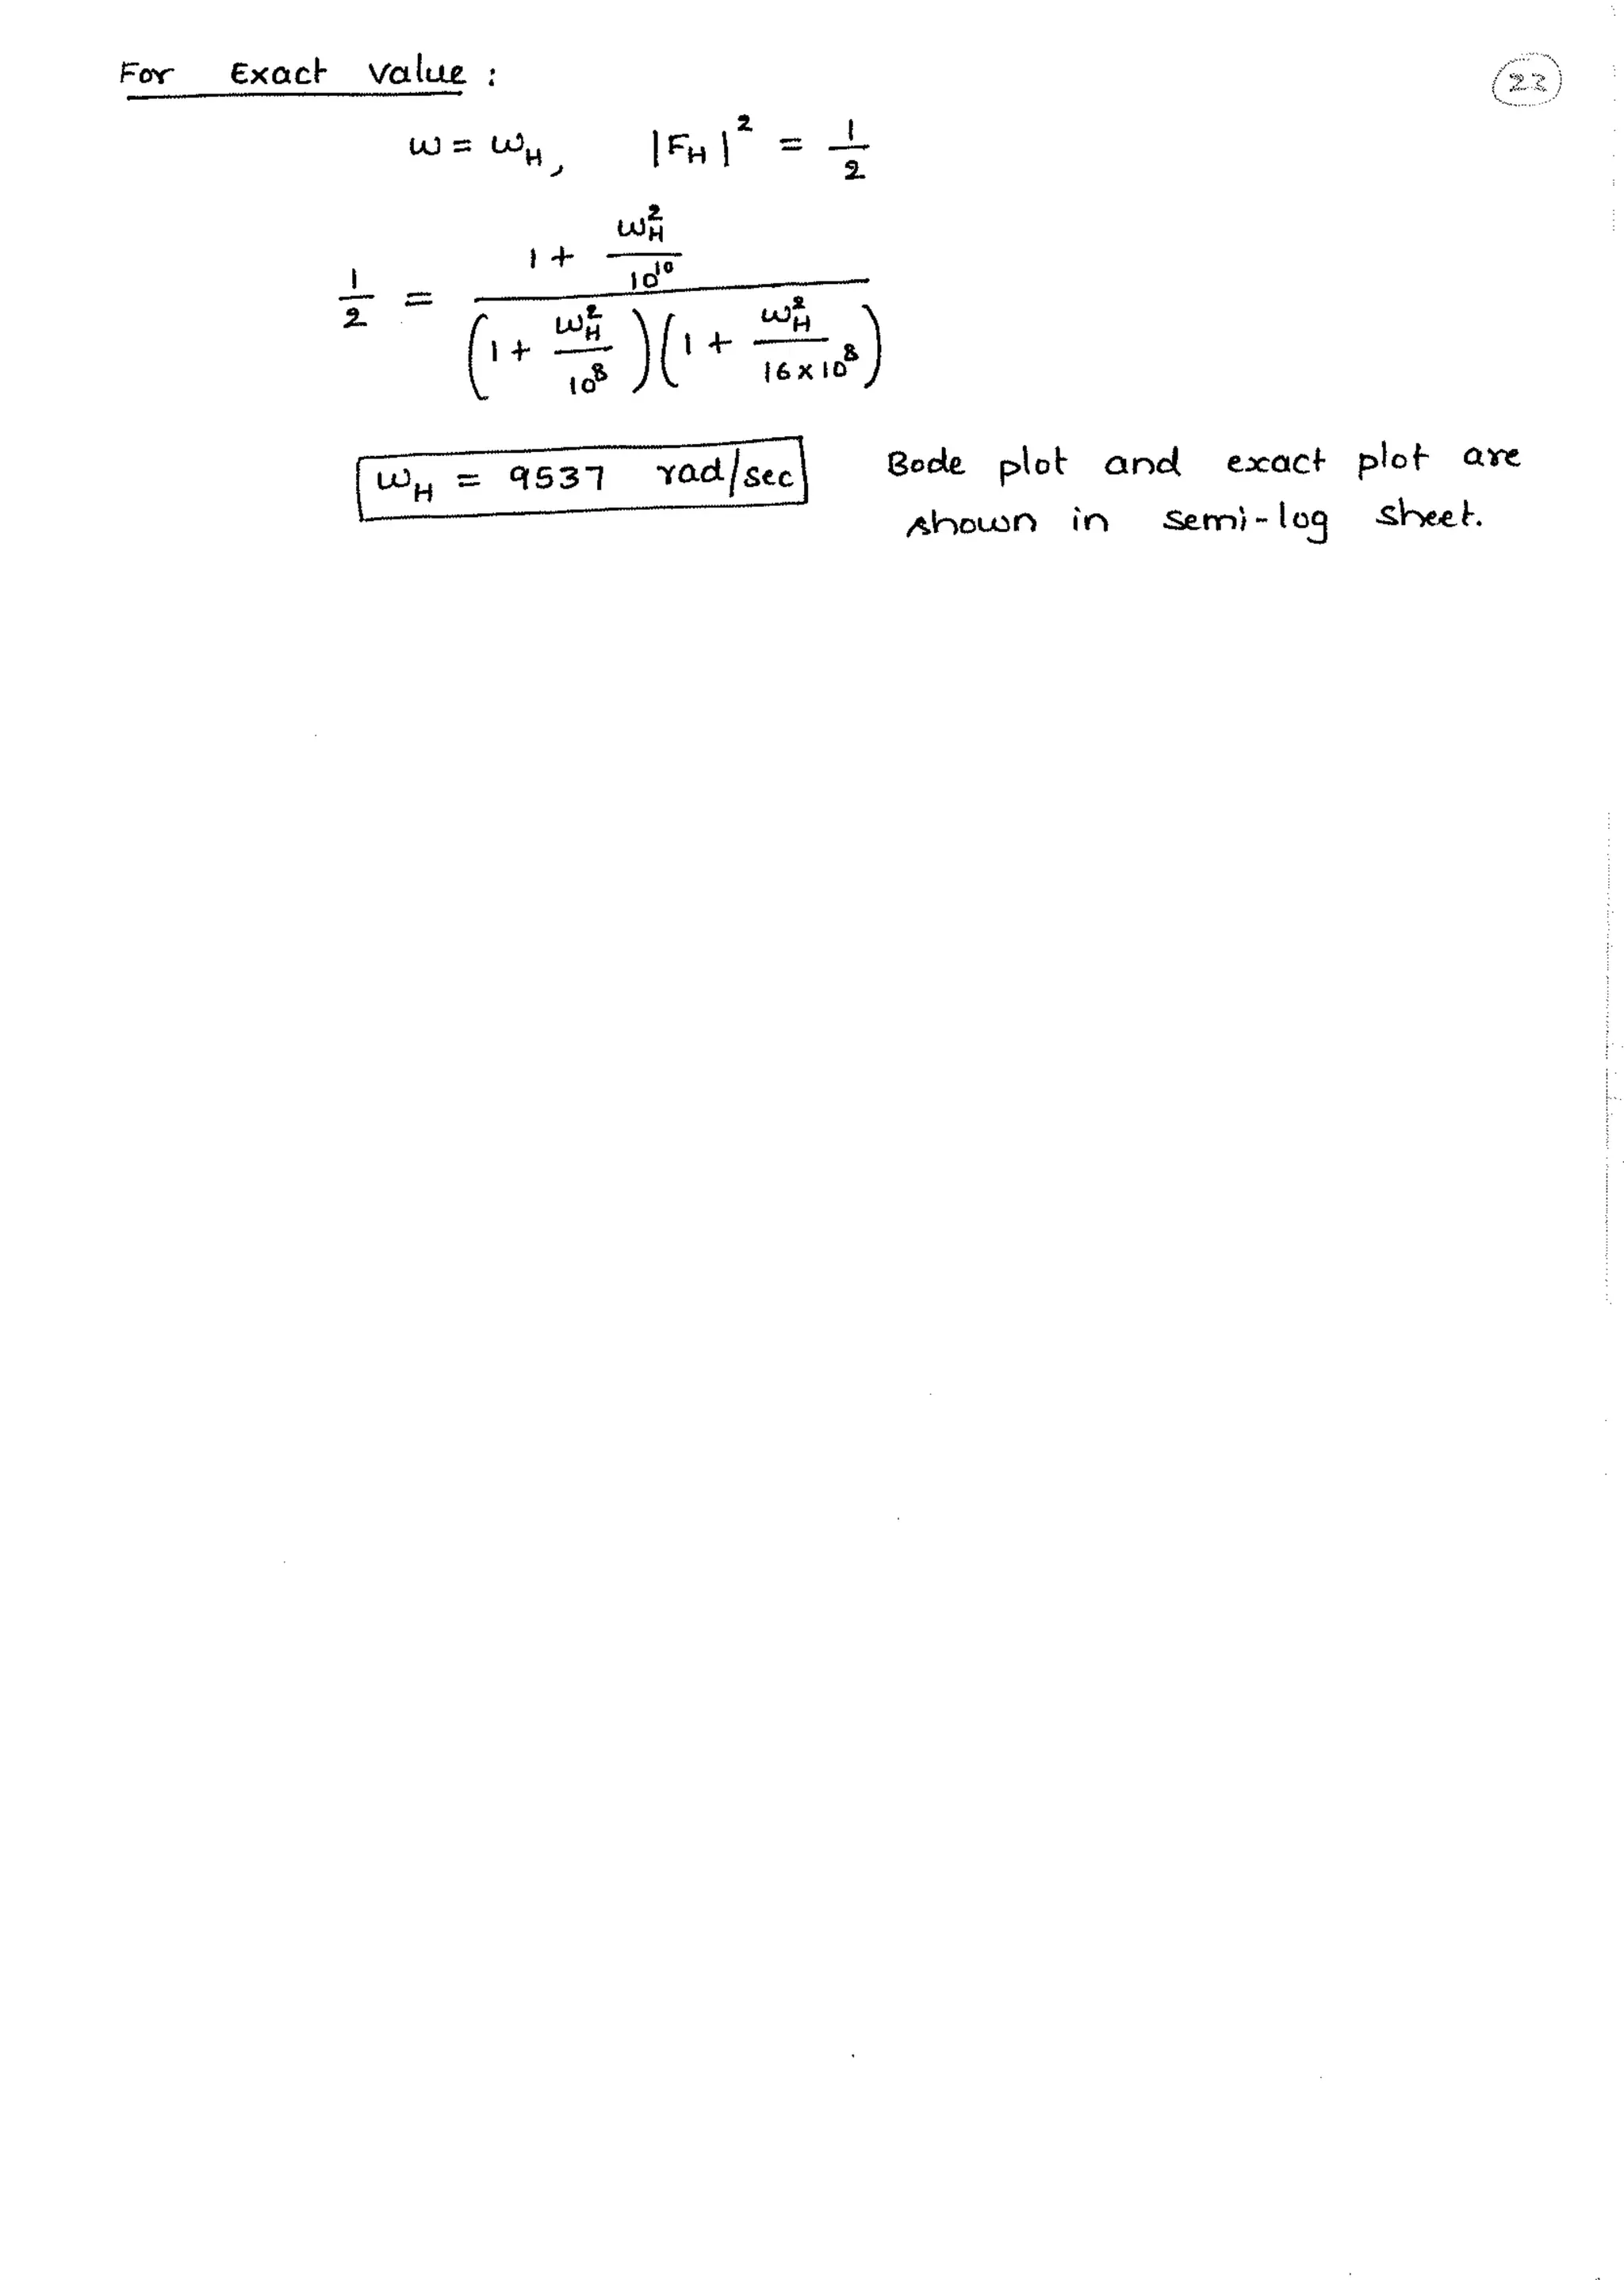 For Exact value :
23
ω = ω_H, |F_H|^2 = 1/2
1/2 = (1 + ω_H^2/10^10) / ((1 + ω_H^2/10^8)(1 + ω_H^2/(16 x 10^8)))
ω_H = 9537 rad/sec Bode plot and exact plot are
shown in semi-log sheet.